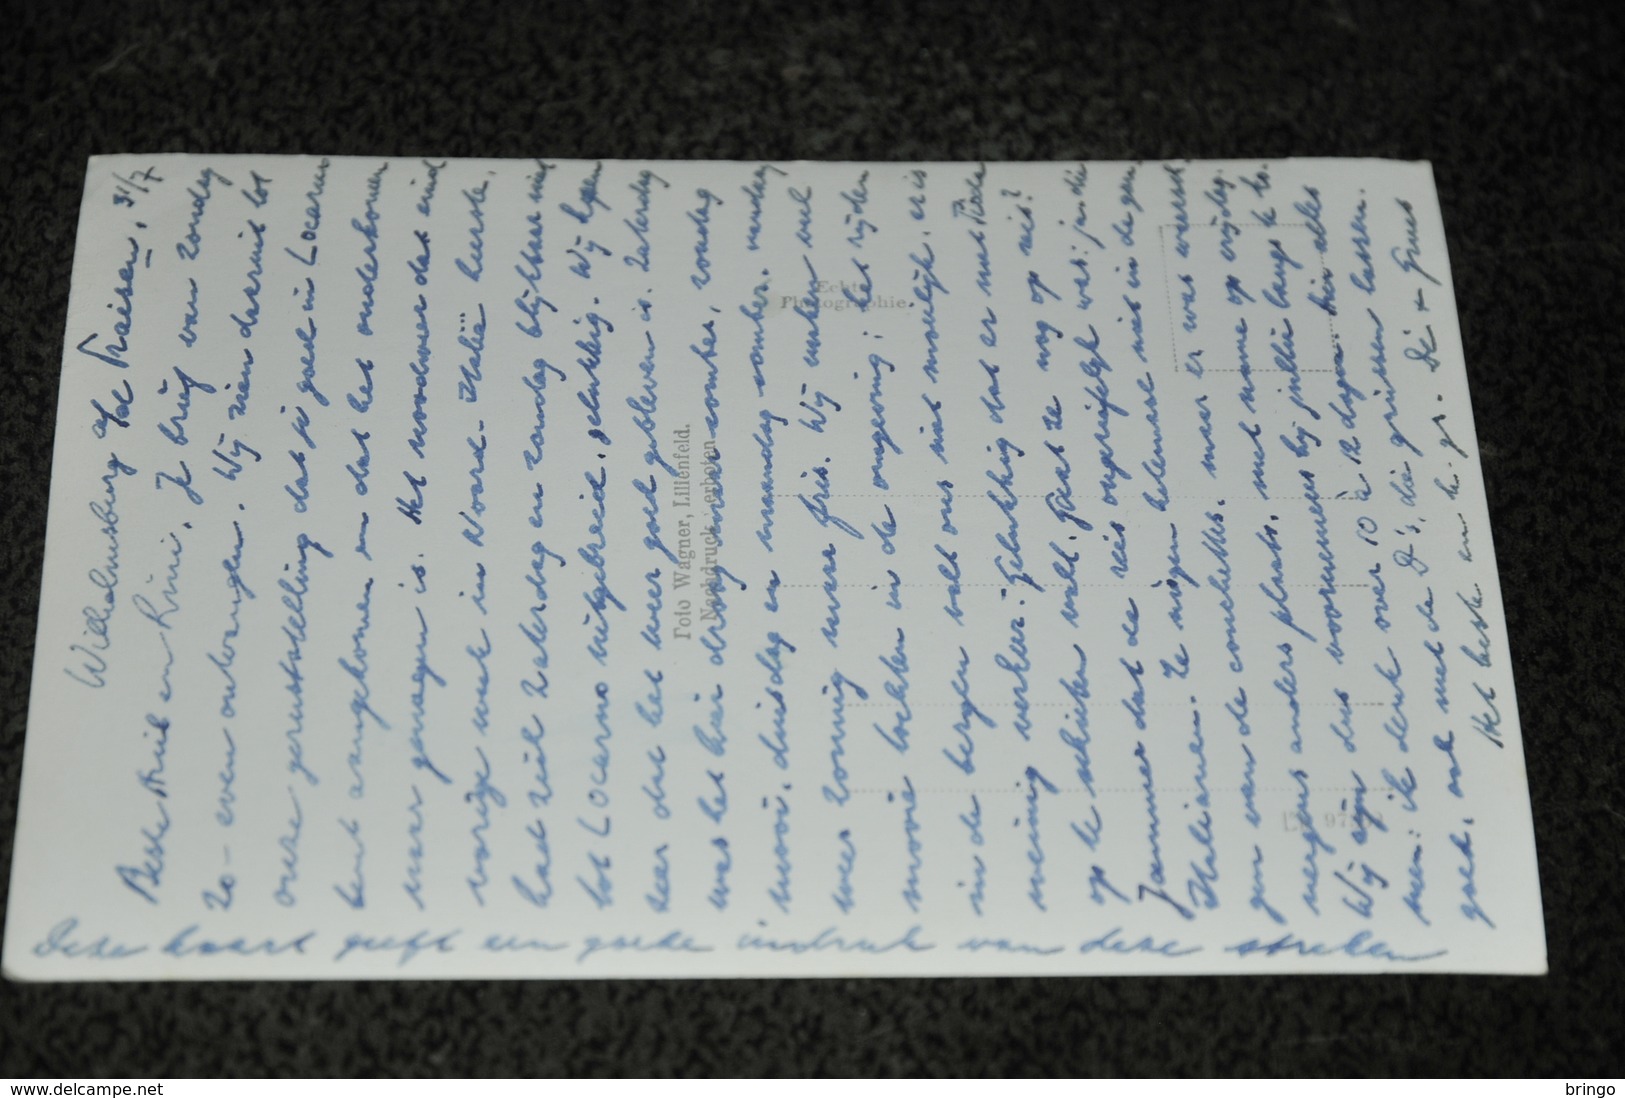 Wilhelmsburg a/d Traisen, 31/7
Beste Puik en Rini, Je brief van zondag
20- even ontvangen. Wij zien daaruit tot
onze geruststelling dat je goed in Locarno
bent aangekomen en dat het onderkomen
naar genoegen is. Het noodweer dat eind
vorige week in Noord-Italië heerste,
had zich zaterdag en zondag blijkbaar niet
tot Locarno uitgebreid, gelukkig. Wij hopen
zeer dat het weer goed gebleven is. Zaterdag
was het hier droog maar somber, zondag
mooi, dinsdag en maandag somber. vandag
weer zonnig maar fris. Wij maken veel
mooie tochten in de omgeving; het rijden
in de bergen valt ons niet moeilijk, er is
weinig verkeer. Gelukkig dat er met
op te schieten valt. Gaat ze nog op reis?
Jammer dat de reis ongerieflijk was: ja, die
Italianen. Ze mogen helemaal niet in de gan
gen van de couchettes, maar er was
nergens anders plaats, met name op vrijdag.
Wij zijn dus voornemens bij jullie langs te ko-
men: ik denk over 10 à 12 dagen. Hier alles
goed, ook met de D's, die grieven lassen.
Het beste en h. gr. Di + Guus
Deze kaart geeft een goede indruk van deze streken
Echte
Photographie
Foto Wagner, Lilienfeld.
Nachdruck verboten
www.delcampe.net
bringo